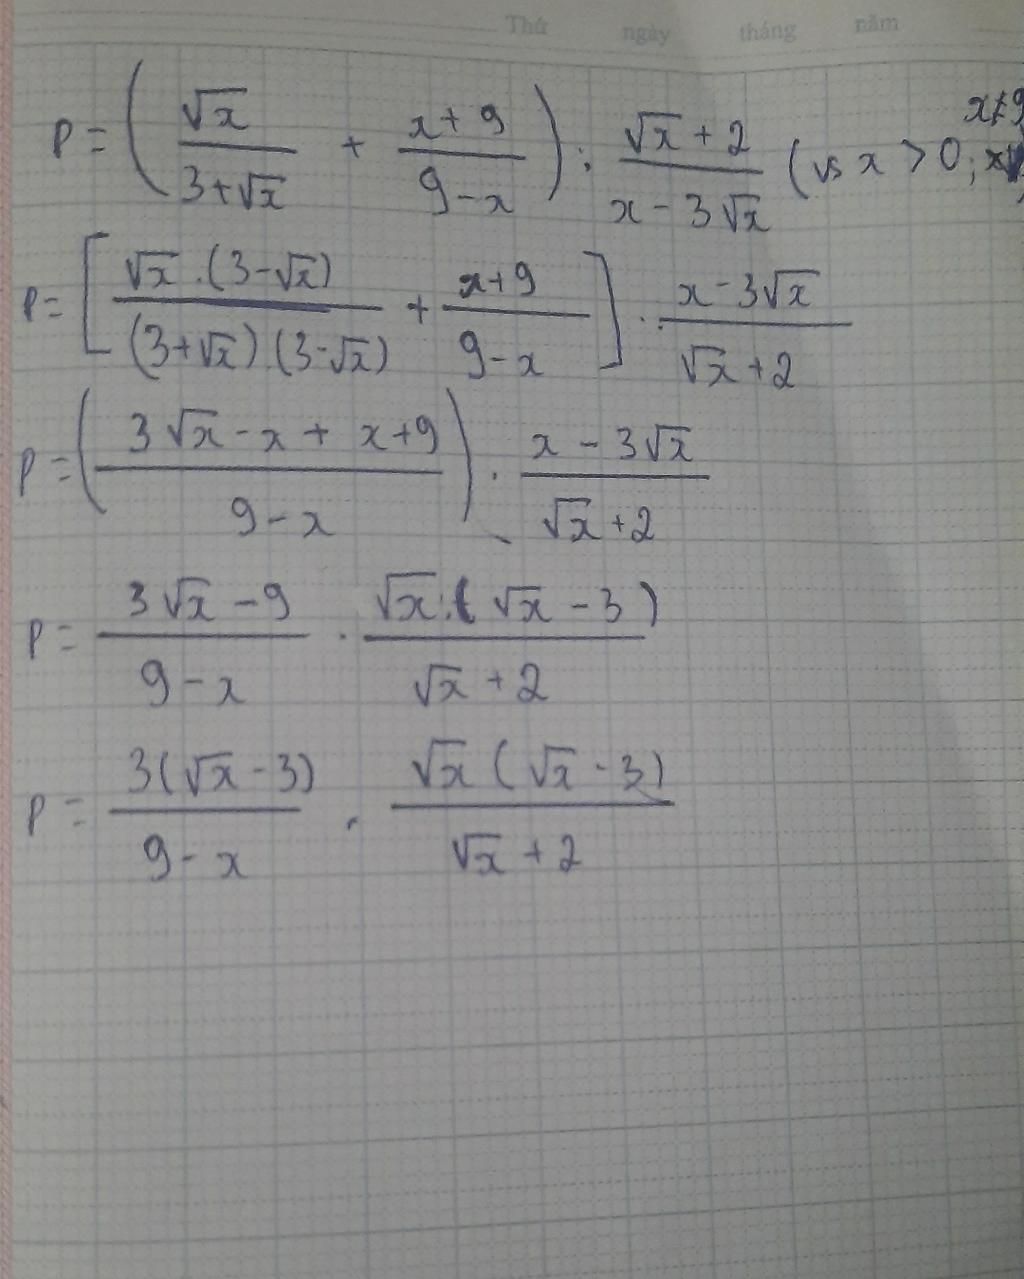 Thứ ngày tháng năm
P = ( √x / (3+√x) + (x+9) / (9-x) ) : (√x+2) / (x-3√x) (vs x > 0; x≠9
P = [ √x.(3-√x) / (3+√x).(3-√x) + (x+9) / (9-x) ] . (x-3√x) / (√x+2)
P = ( (3√x-x+x+9) / (9-x) ) . (x-3√x) / (√x+2)
P = (3√x-9) / (9-x) . √x.(√x-3) / (√x+2)
P = 3(√x-3) / (9-x) . √x(√x-3) / (√x+2)